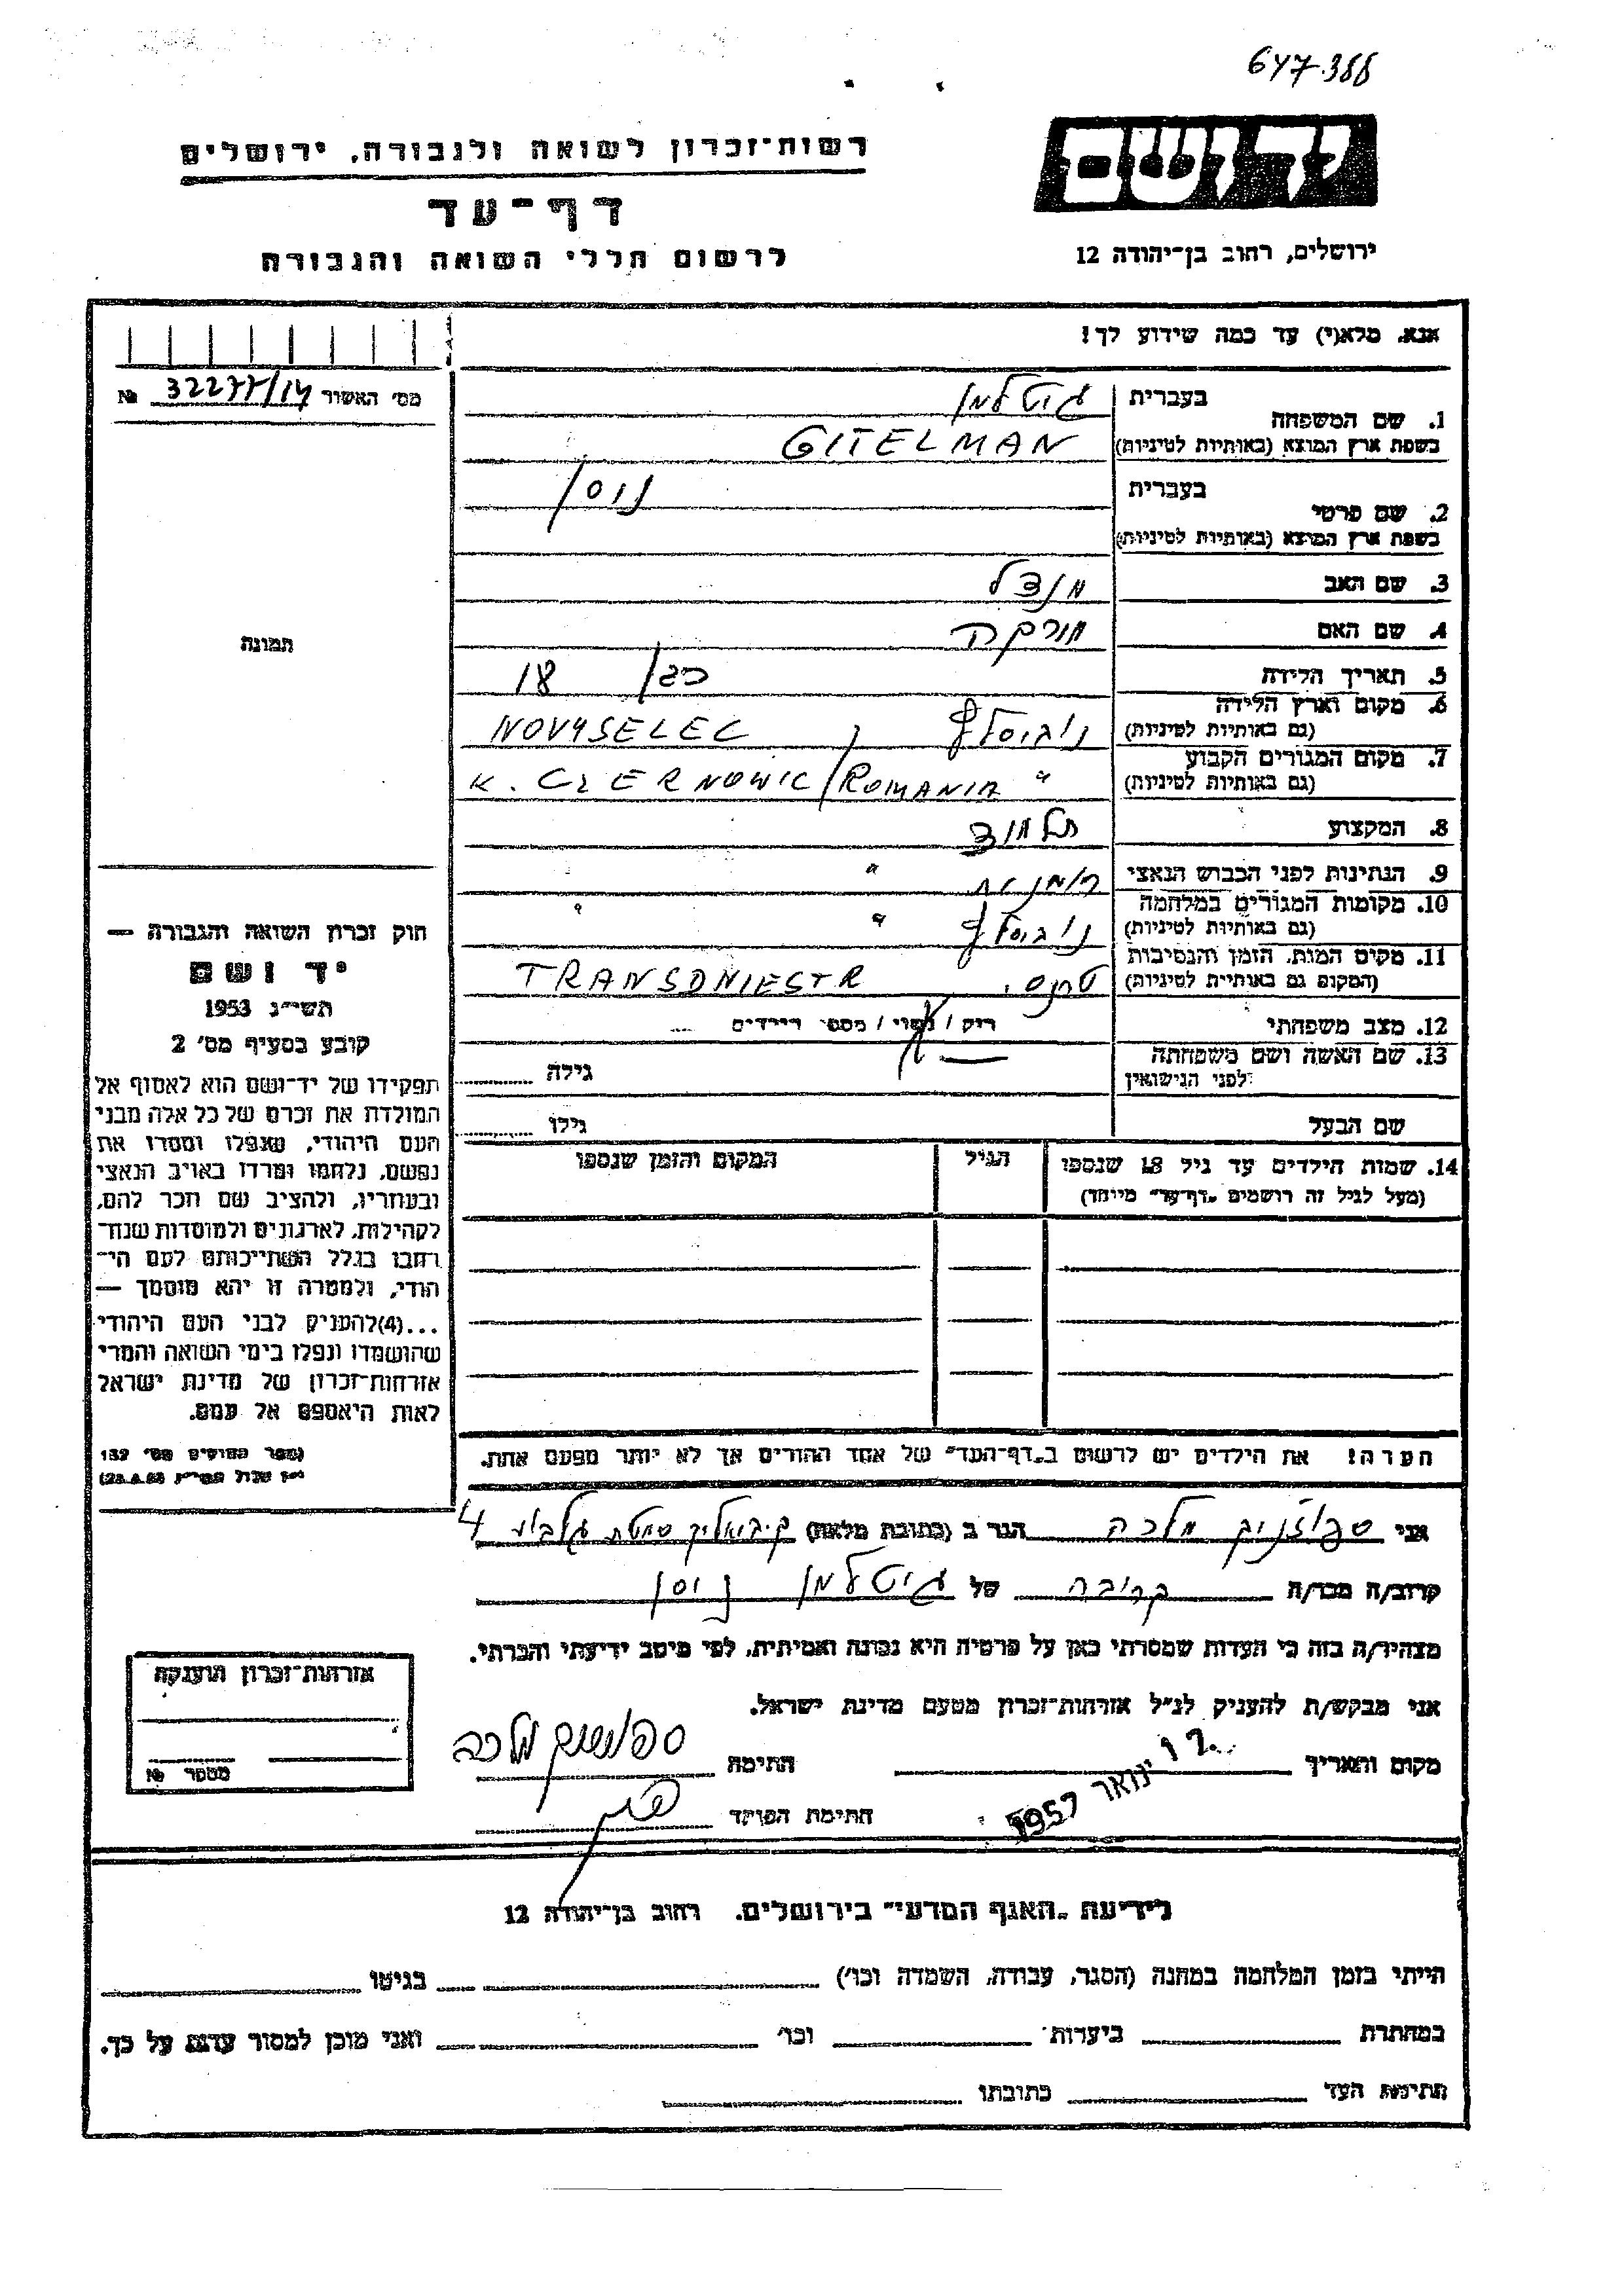 647.388
יד ושם
רשות-זכרון לשואה ולגבורה, ירושלים
דף-עד
ירושלים, רחוב בן-יהודה 12
לרשום חללי השואה והגבורה
אנא, מלא(י) עד כמה שידוע לך!
מס' האשור № 32277/14
1. שם המשפחה
בעברית גיטלמן
בשפת ארץ המוצא (באותיות לטיניות) GITELMAN
2. שם פרטי
בעברית נוסן
בשפת ארץ המוצא (באותיות לטיניות)
3. שם האב מנדל
4. שם האם
תמונה
5. תאריך הלידה בן 18
6. מקום וארץ הלידה
(גם באותיות לטיניות) NOVYSELEC
7. מקום המגורים הקבוע
(גם באותיות לטיניות) " K. CZERNOWIC / ROMANIA
8. המקצוע תלמיד
9. הנתינות לפני הכבוש הנאצי "
10. מקומות המגורים במלחמה
(גם באותיות לטיניות) " "
11. מקום המות, הזמן והנסיבות
(המקום גם באותיות לטיניות) טרנס. TRANSDNIESTR
12. מצב משפחתי רוק / נשוי / מספר הילדים
13. שם האשה ושם משפחתה
לפני הנישואין — גילה
שם הבעל גילו
חוק זכרון השואה והגבורה —
יד ושם
תשי"ג 1953
קובע בסעיף מס' 2
תפקידו של יד-ושם הוא לאסוף אל
המולדת את זכרם של כל אלה מבני
העם היהודי, שנפלו ומסרו את
נפשם, נלחמו ומרדו באויב הנאצי
ובעוזריו, ולהציב שם וזכר להם,
לקהילות, לארגונים ולמוסדות שנח-
רבו בגלל השתייכותם לעם הי-
הודי, ולמטרה זו יהא מוסמך —
...(4)להעניק לבני העם היהודי
שהושמדו ונפלו בימי השואה והמרי
אזרחות-זכרון של מדינת ישראל
לאות היאספם אל עמם.
(ספר החוקים מס' 132
14. שמות הילדים עד גיל 18 שנספו
(מעל לגיל זה רושמים "דף-עד" מיוחד)
הגיל
המקום והזמן שנספו
הערה! את הילדים יש לרשום ב"דף-העד" של אחד ההורים אך לא יותר מפעם אחת.
אני מלכה הגר ב (כתובת מלאה) 4
קרוב/ה מכר/ה קרובה של גיטלמן נוסן
מצהיר/ה בזה כי העדות שמסרתי כאן על פרטיה היא נכונה ואמיתית, לפי מיטב ידיעתי והכרתי.
אני מבקש/ת להעניק לנ"ל אזרחות-זכרון מטעם מדינת ישראל.
מקום ותאריך ינואר 1957 חתימה מלכה
חתימת הפוקד
אזרחות-זכרון הוענקה
מספר №
לידיעת "האגף המדעי" בירושלים. רחוב בן-יהודה 12
הייתי בזמן המלחמה במחנה (הסגר, עבודה, השמדה וכו') בגיטו
במחתרת ביערות וכו' ואני מוכן למסור עדות על כך.
חתימת העד כתובתו